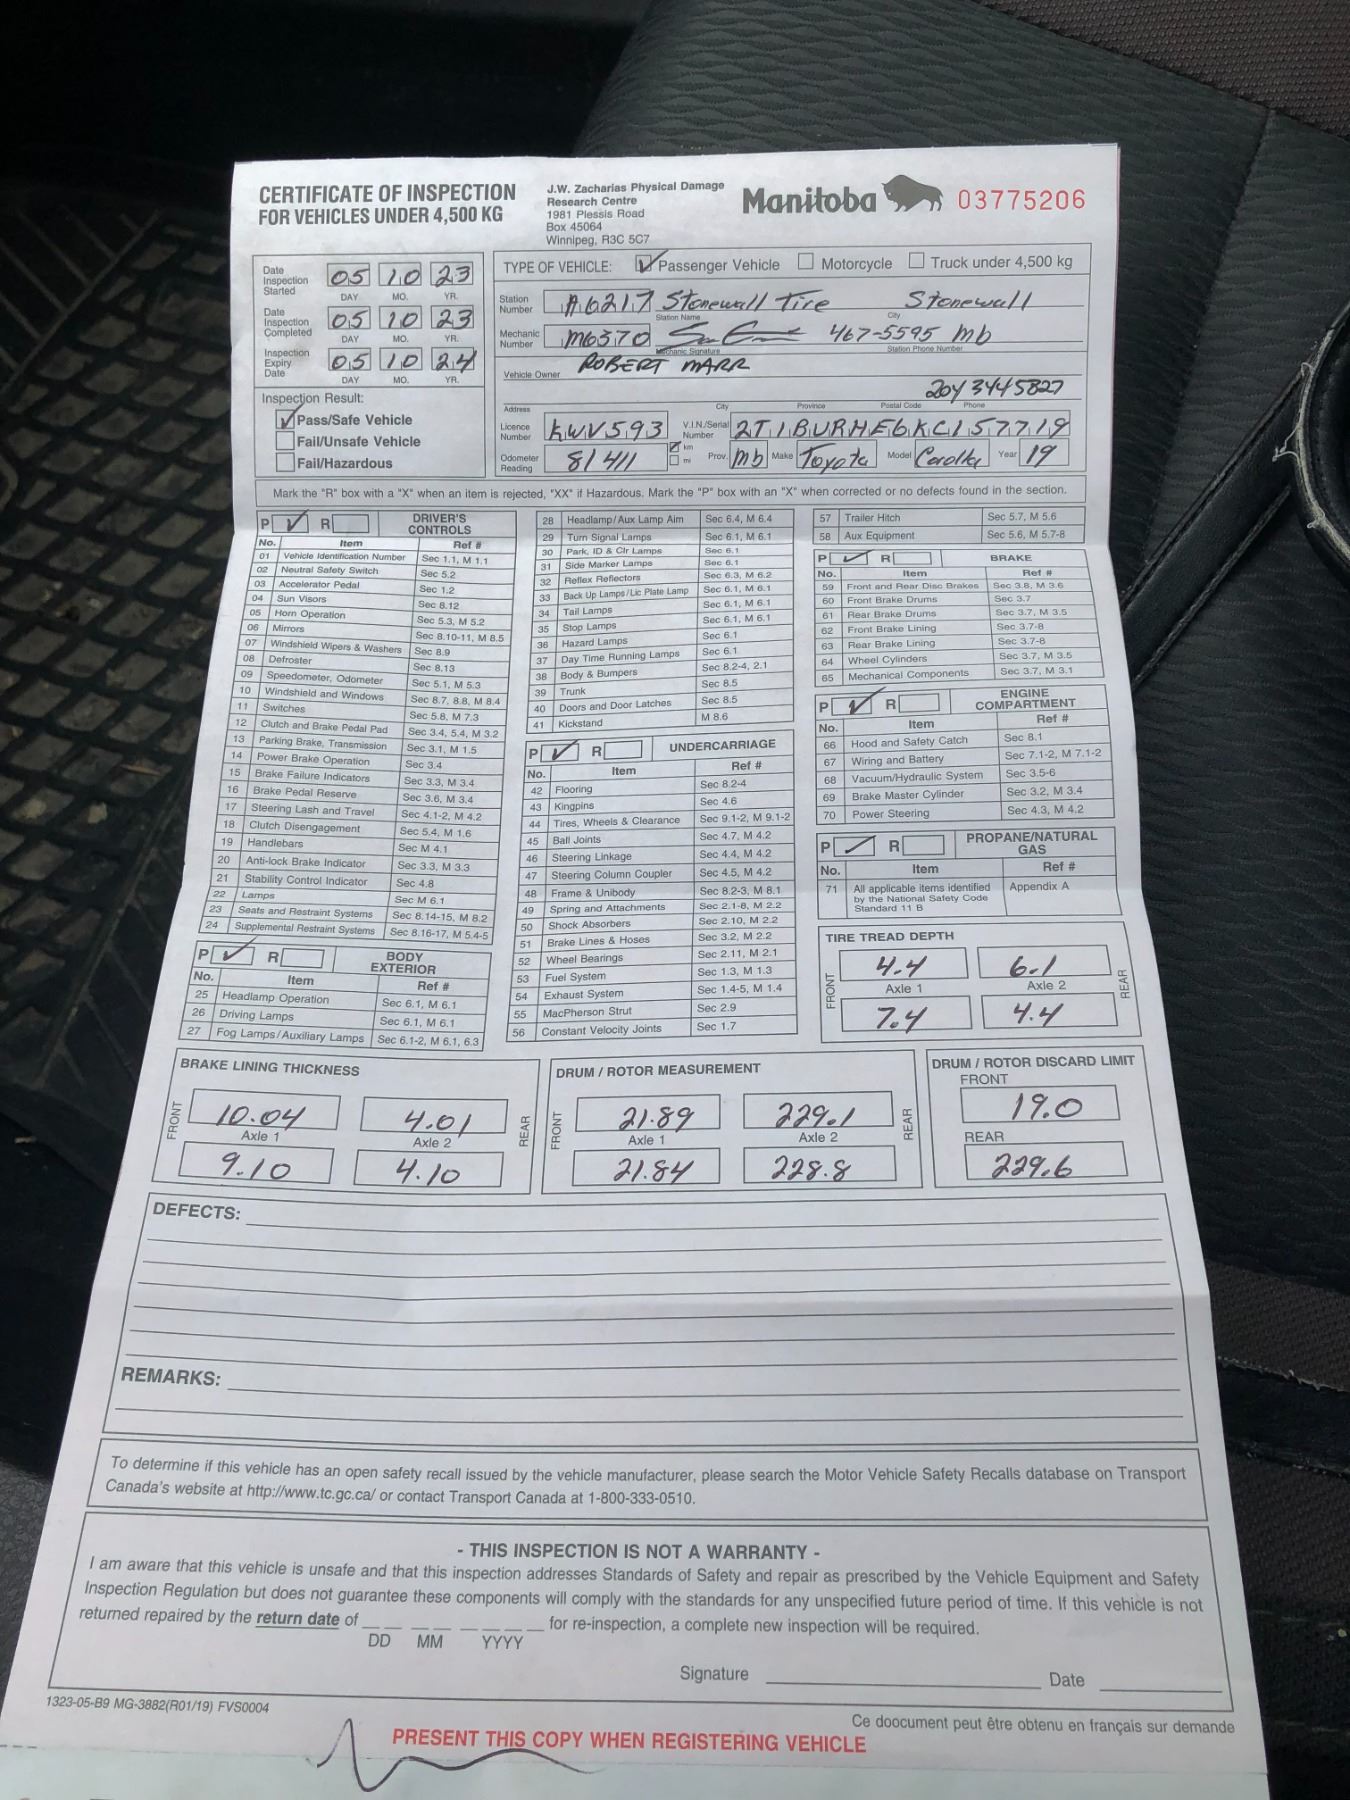 CERTIFICATE OF INSPECTION
FOR VEHICLES UNDER 4,500 KG
J.W. Zacharias Physical Damage
Research Centre
1981 Plessis Road
Box 45064
Winnipeg, R3C 5C7
Manitoba 03775206
Date Inspection Started 05 10 23
DAY MO. YR.
Date Inspection Completed 05 10 23
DAY MO. YR.
Inspection Expiry Date 05 10 24
DAY MO. YR.
Inspection Result:
Pass/Safe Vehicle
Fail/Unsafe Vehicle
Fail/Hazardous
TYPE OF VEHICLE: Passenger Vehicle Motorcycle Truck under 4,500 kg
Station Number A6217 Stonewall Tire Stonewall
Station Name City
Mechanic Number M6370 467-5595 mb
Mechanic Signature Station Phone Number
Vehicle Owner ROBERT MARR
204 3445827
Address City Province Postal Code Phone
Licence Number KWV593 V.I.N/Serial Number 2T1BURHE6KC157719
Odometer Reading 81411 km mi Prov. Mb Make Toyota Model Corolla Year 19
Mark the "R" box with a "X" when an item is rejected, "XX" if Hazardous. Mark the "P" box with an "X" when corrected or no defects found in the section.
P R DRIVER'S CONTROLS
No. Item Ref #
01 Vehicle Identification Number Sec 1.1, M 1.1
02 Neutral Safety Switch Sec 5.2
03 Accelerator Pedal Sec 1.2
04 Sun Visors Sec 8.12
05 Horn Operation Sec 5.3, M 5.2
06 Mirrors Sec 8.10-11, M 8.5
07 Windshield Wipers & Washers Sec 8.9
08 Defroster Sec 8.13
09 Speedometer, Odometer Sec 5.1, M 5.3
10 Windshield and Windows Sec 8.7, 8.8, M 8.4
11 Switches Sec 5.8, M 7.3
12 Clutch and Brake Pedal Pad Sec 3.4, 5.4, M 3.2
13 Parking Brake, Transmission Sec 3.1, M 1.5
14 Power Brake Operation Sec 3.4
15 Brake Failure Indicators Sec 3.3, M 3.4
16 Brake Pedal Reserve Sec 3.6, M 3.4
17 Steering Lash and Travel Sec 4.1-2, M 4.2
18 Clutch Disengagement Sec 5.4, M 1.6
19 Handlebars Sec M 4.1
20 Anti-lock Brake Indicator Sec 3.3, M 3.3
21 Stability Control Indicator Sec 4.8
22 Lamps Sec M 6.1
23 Seats and Restraint Systems Sec 8.14-15, M 8.2
24 Supplemental Restraint Systems Sec 8.16-17, M 5.4-5
P R BODY EXTERIOR
No. Item Ref #
25 Headlamp Operation Sec 6.1, M 6.1
26 Driving Lamps Sec 6.1, M 6.1
27 Fog Lamps/Auxiliary Lamps Sec 6.1-2, M 6.1, 6.3
28 Headlamp/Aux Lamp Aim Sec 6.4, M 6.4
29 Turn Signal Lamps Sec 6.1, M 6.1
30 Park, ID & Clr Lamps Sec 6.1
31 Side Marker Lamps Sec 6.1
32 Reflex Reflectors Sec 6.3, M 6.2
33 Back Up Lamps/Lic Plate Lamp Sec 6.1, M 6.1
34 Tail Lamps Sec 6.1, M 6.1
35 Stop Lamps Sec 6.1, M 6.1
36 Hazard Lamps Sec 6.1
37 Day Time Running Lamps Sec 6.1
38 Body & Bumpers Sec 8.2-4, 2.1
39 Trunk Sec 8.5
40 Doors and Door Latches Sec 8.5
41 Kickstand M 8.6
P R UNDERCARRIAGE
No. Item Ref #
42 Flooring Sec 8.2-4
43 Kingpins Sec 4.6
44 Tires, Wheels & Clearance Sec 9.1-2, M 9.1-2
45 Ball Joints Sec 4.7, M 4.2
46 Steering Linkage Sec 4.4, M 4.2
47 Steering Column Coupler Sec 4.5, M 4.2
48 Frame & Unibody Sec 8.2-3, M 8.1
49 Spring and Attachments Sec 2.1-8, M 2.2
50 Shock Absorbers Sec 2.10, M 2.2
51 Brake Lines & Hoses Sec 3.2, M 2.2
52 Wheel Bearings Sec 2.11, M 2.1
53 Fuel System Sec 1.3, M 1.3
54 Exhaust System Sec 1.4-5, M 1.4
55 MacPherson Strut Sec 2.9
56 Constant Velocity Joints Sec 1.7
57 Trailer Hitch Sec 5.7, M 5.6
58 Aux Equipment Sec 5.6, M 5.7-8
P R BRAKE
No. Item Ref #
59 Front and Rear Disc Brakes Sec 3.8, M 3.6
60 Front Brake Drums Sec 3.7
61 Rear Brake Drums Sec 3.7, M 3.5
62 Front Brake Lining Sec 3.7-8
63 Rear Brake Lining Sec 3.7-8
64 Wheel Cylinders Sec 3.7, M 3.5
65 Mechanical Components Sec 3.7, M 3.1
P R ENGINE COMPARTMENT
No. Item Ref #
66 Hood and Safety Catch Sec 8.1
67 Wiring and Battery Sec 7.1-2, M 7.1-2
68 Vacuum/Hydraulic System Sec 3.5-6
69 Brake Master Cylinder Sec 3.2, M 3.4
70 Power Steering Sec 4.3, M 4.2
P R PROPANE/NATURAL GAS
No. Item Ref #
71 All applicable items identified by the National Safety Code Standard 11 B Appendix A
TIRE TREAD DEPTH
FRONT 4.4 6.1 REAR
Axle 1 Axle 2
7.4 4.4
BRAKE LINING THICKNESS
FRONT 10.04 4.01 REAR
Axle 1 Axle 2
9.10 4.10
DRUM / ROTOR MEASUREMENT
FRONT 21.89 229.1 REAR
Axle 1 Axle 2
21.84 228.8
DRUM / ROTOR DISCARD LIMIT
FRONT
19.0
REAR
229.6
DEFECTS:
REMARKS:
To determine if this vehicle has an open safety recall issued by the vehicle manufacturer, please search the Motor Vehicle Safety Recalls database on Transport
Canada's website at http://www.tc.gc.ca/ or contact Transport Canada at 1-800-333-0510.
- THIS INSPECTION IS NOT A WARRANTY -
I am aware that this vehicle is unsafe and that this inspection addresses Standards of Safety and repair as prescribed by the Vehicle Equipment and Safety
Inspection Regulation but does not guarantee these components will comply with the standards for any unspecified future period of time. If this vehicle is not
returned repaired by the return date of __ __ __ __ __ __ __ __ for re-inspection, a complete new inspection will be required.
DD MM YYYY
Signature Date
1323-05-B9 MG-3882(R01/19) FVS0004
Ce doocument peut être obtenu en français sur demande
PRESENT THIS COPY WHEN REGISTERING VEHICLE